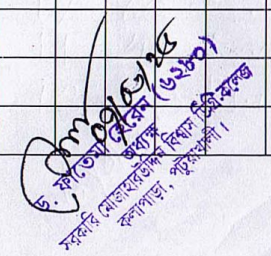 ০৭/০৫/২৫
ড. ফাতেমা হেরেন (৬২৪০)
অধ্যক্ষ
সরকারি মোজাহারউদ্দিন বিশ্বাস ডিগ্রী কলেজ
কলাপাড়া, পটুয়াখালী।